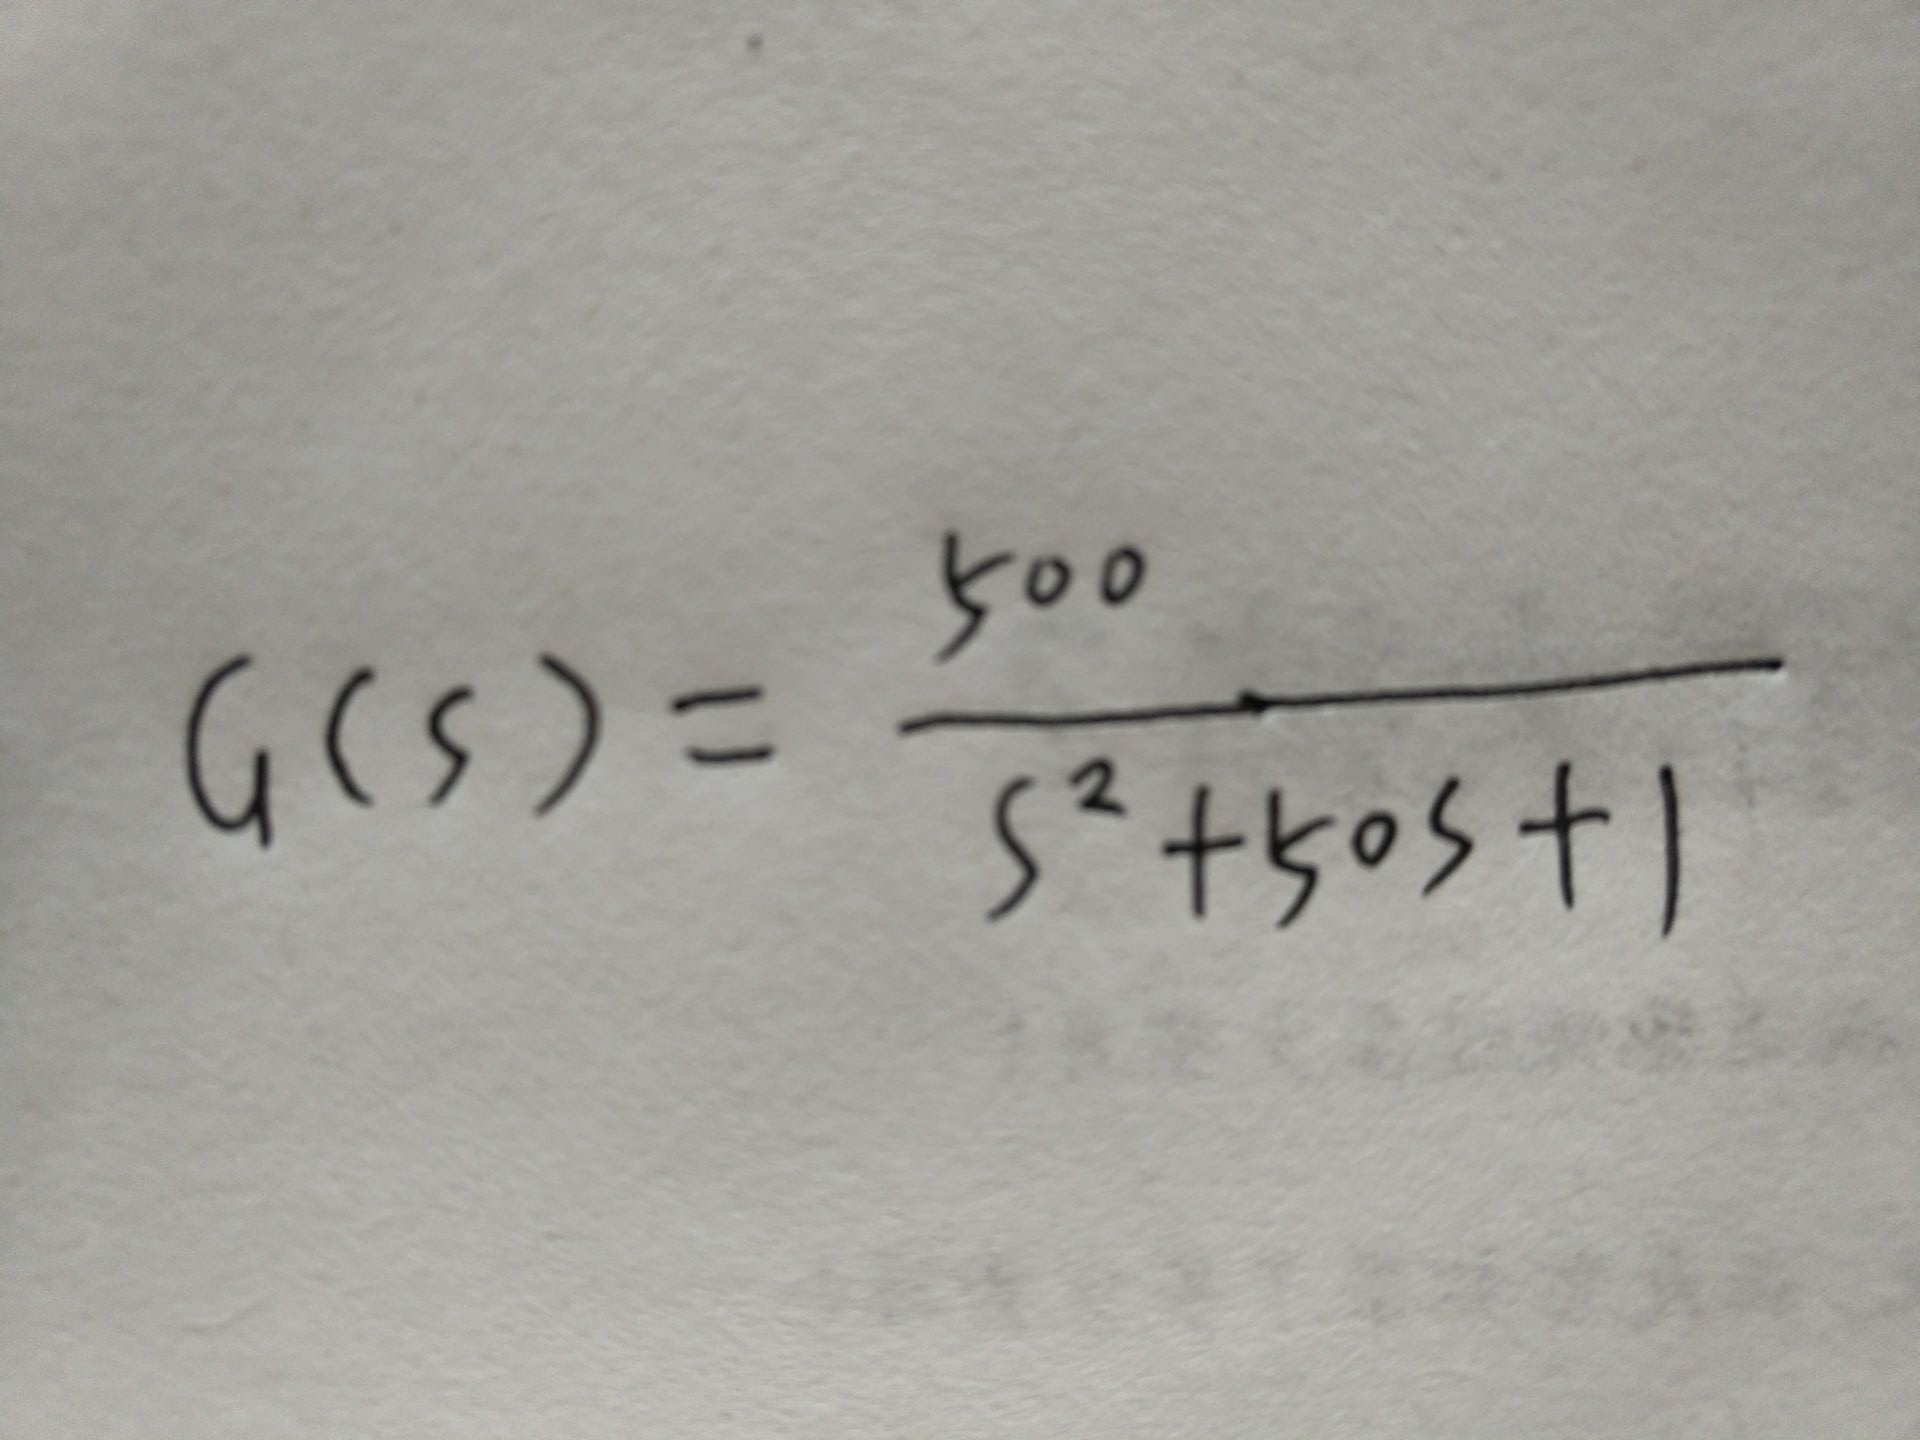 G(s) = 500 / s² + 50s + 1